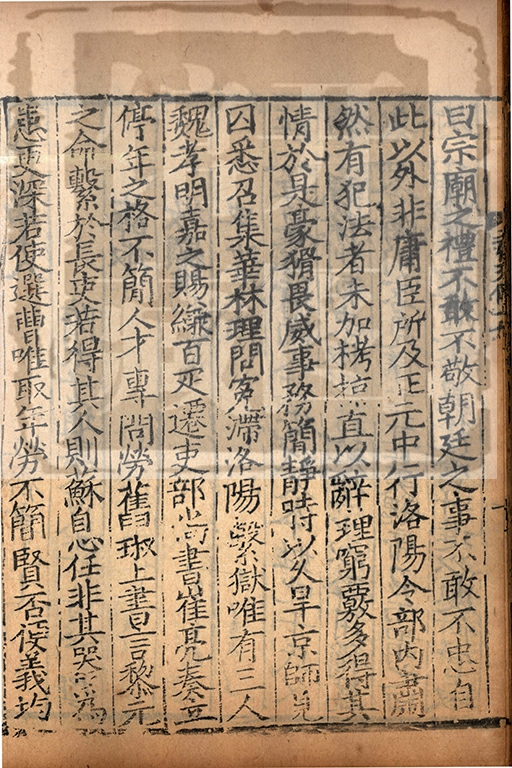 曰宗廟之禮不敢不敬朝廷之事不敢不忠自
此以外非庸臣所及正元中行洛陽令部內肅
然有犯法者未加栲掠直以辭理窮覈多得其
情於是豪猾畏威事務簡靜時以久旱京師見
囚悉召集華林理問寃滯洛陽繫獄唯有三人
魏孝明嘉之賜縑百疋遷吏部尚書崔亮奏立
停年之格不簡人才專問勞舊琡上書言黎元
之命繫於長吏若得其人則蘇息任非其器為
患更深若使選曹唯取年勞不簡賢否便義均